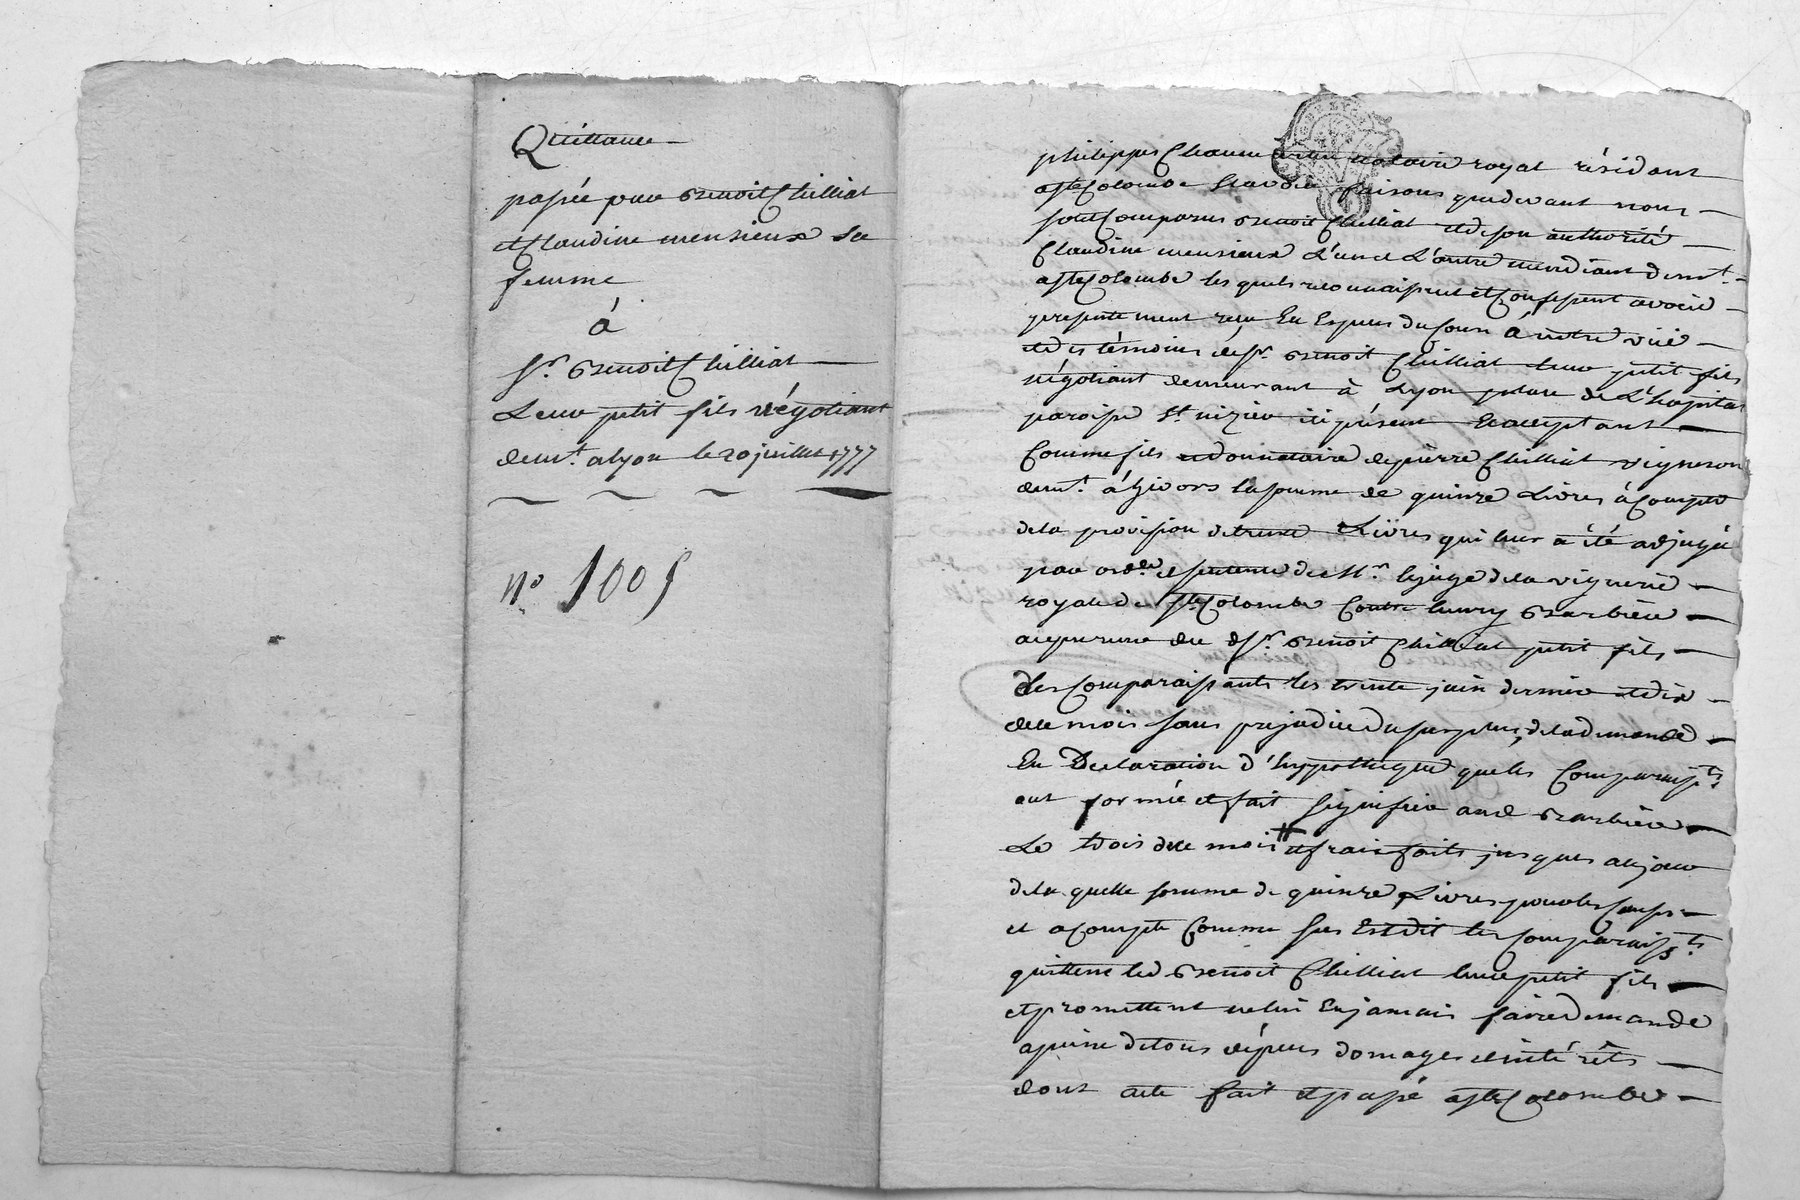 Quittance
passée par Benoit Chilliat
et Claudine mensieux sa
femme
à
Sr. Benoit Chilliat
Leur petit fils négotiant
demt. a lyon le 20 juillet 1777
no 1005
philippes notaire royal résidant
a ste Colombe faisons que devant nous
sont Comparus Benoit Chilliat et de son authorité
Claudine mensieux L'un et L'autre demt.
a ste Colombe les quels reconnaissent et Confessent avoir
presentement reçu En Espèces du Cours à notre vüe
et des témoins de Sr. Benoit Chilliat leur petit fils
négotiant demeurant à Lyon place de L'hopital
paroisse St. nizier ici présent Et acceptant
Comme fils et donnataire de pierre Chilliat vigneron
demt. à Givors la somme de quinze Livres à Compte
de la provision de trente Livres qui leur a été adjugée
par ordce et sentence de Mr. le juge de la viguerie
royale de ste Colombe Contre Barbier
du dSr. Benoit Chilliat petit fils
des Comparaissants les trente juin dernier et dix
dece mois sans prejudice du surplus, de la demande
En Déclaration d'hyppotheque que les Comparaists
ont formée et fait signifier aud Barbier
Le trois de ce mois et frais faits jusques au jour
de la quelle somme de quinze Livres pour les Causes
et a Compte Comme sus Est dit les Comparaissts
quittent led Benoit Chilliat leur petit fils
et promettent ne lui En jamais faire demande
a peine de tous dépens domages et intérêts
dont acte fait et passé a ste Colombe